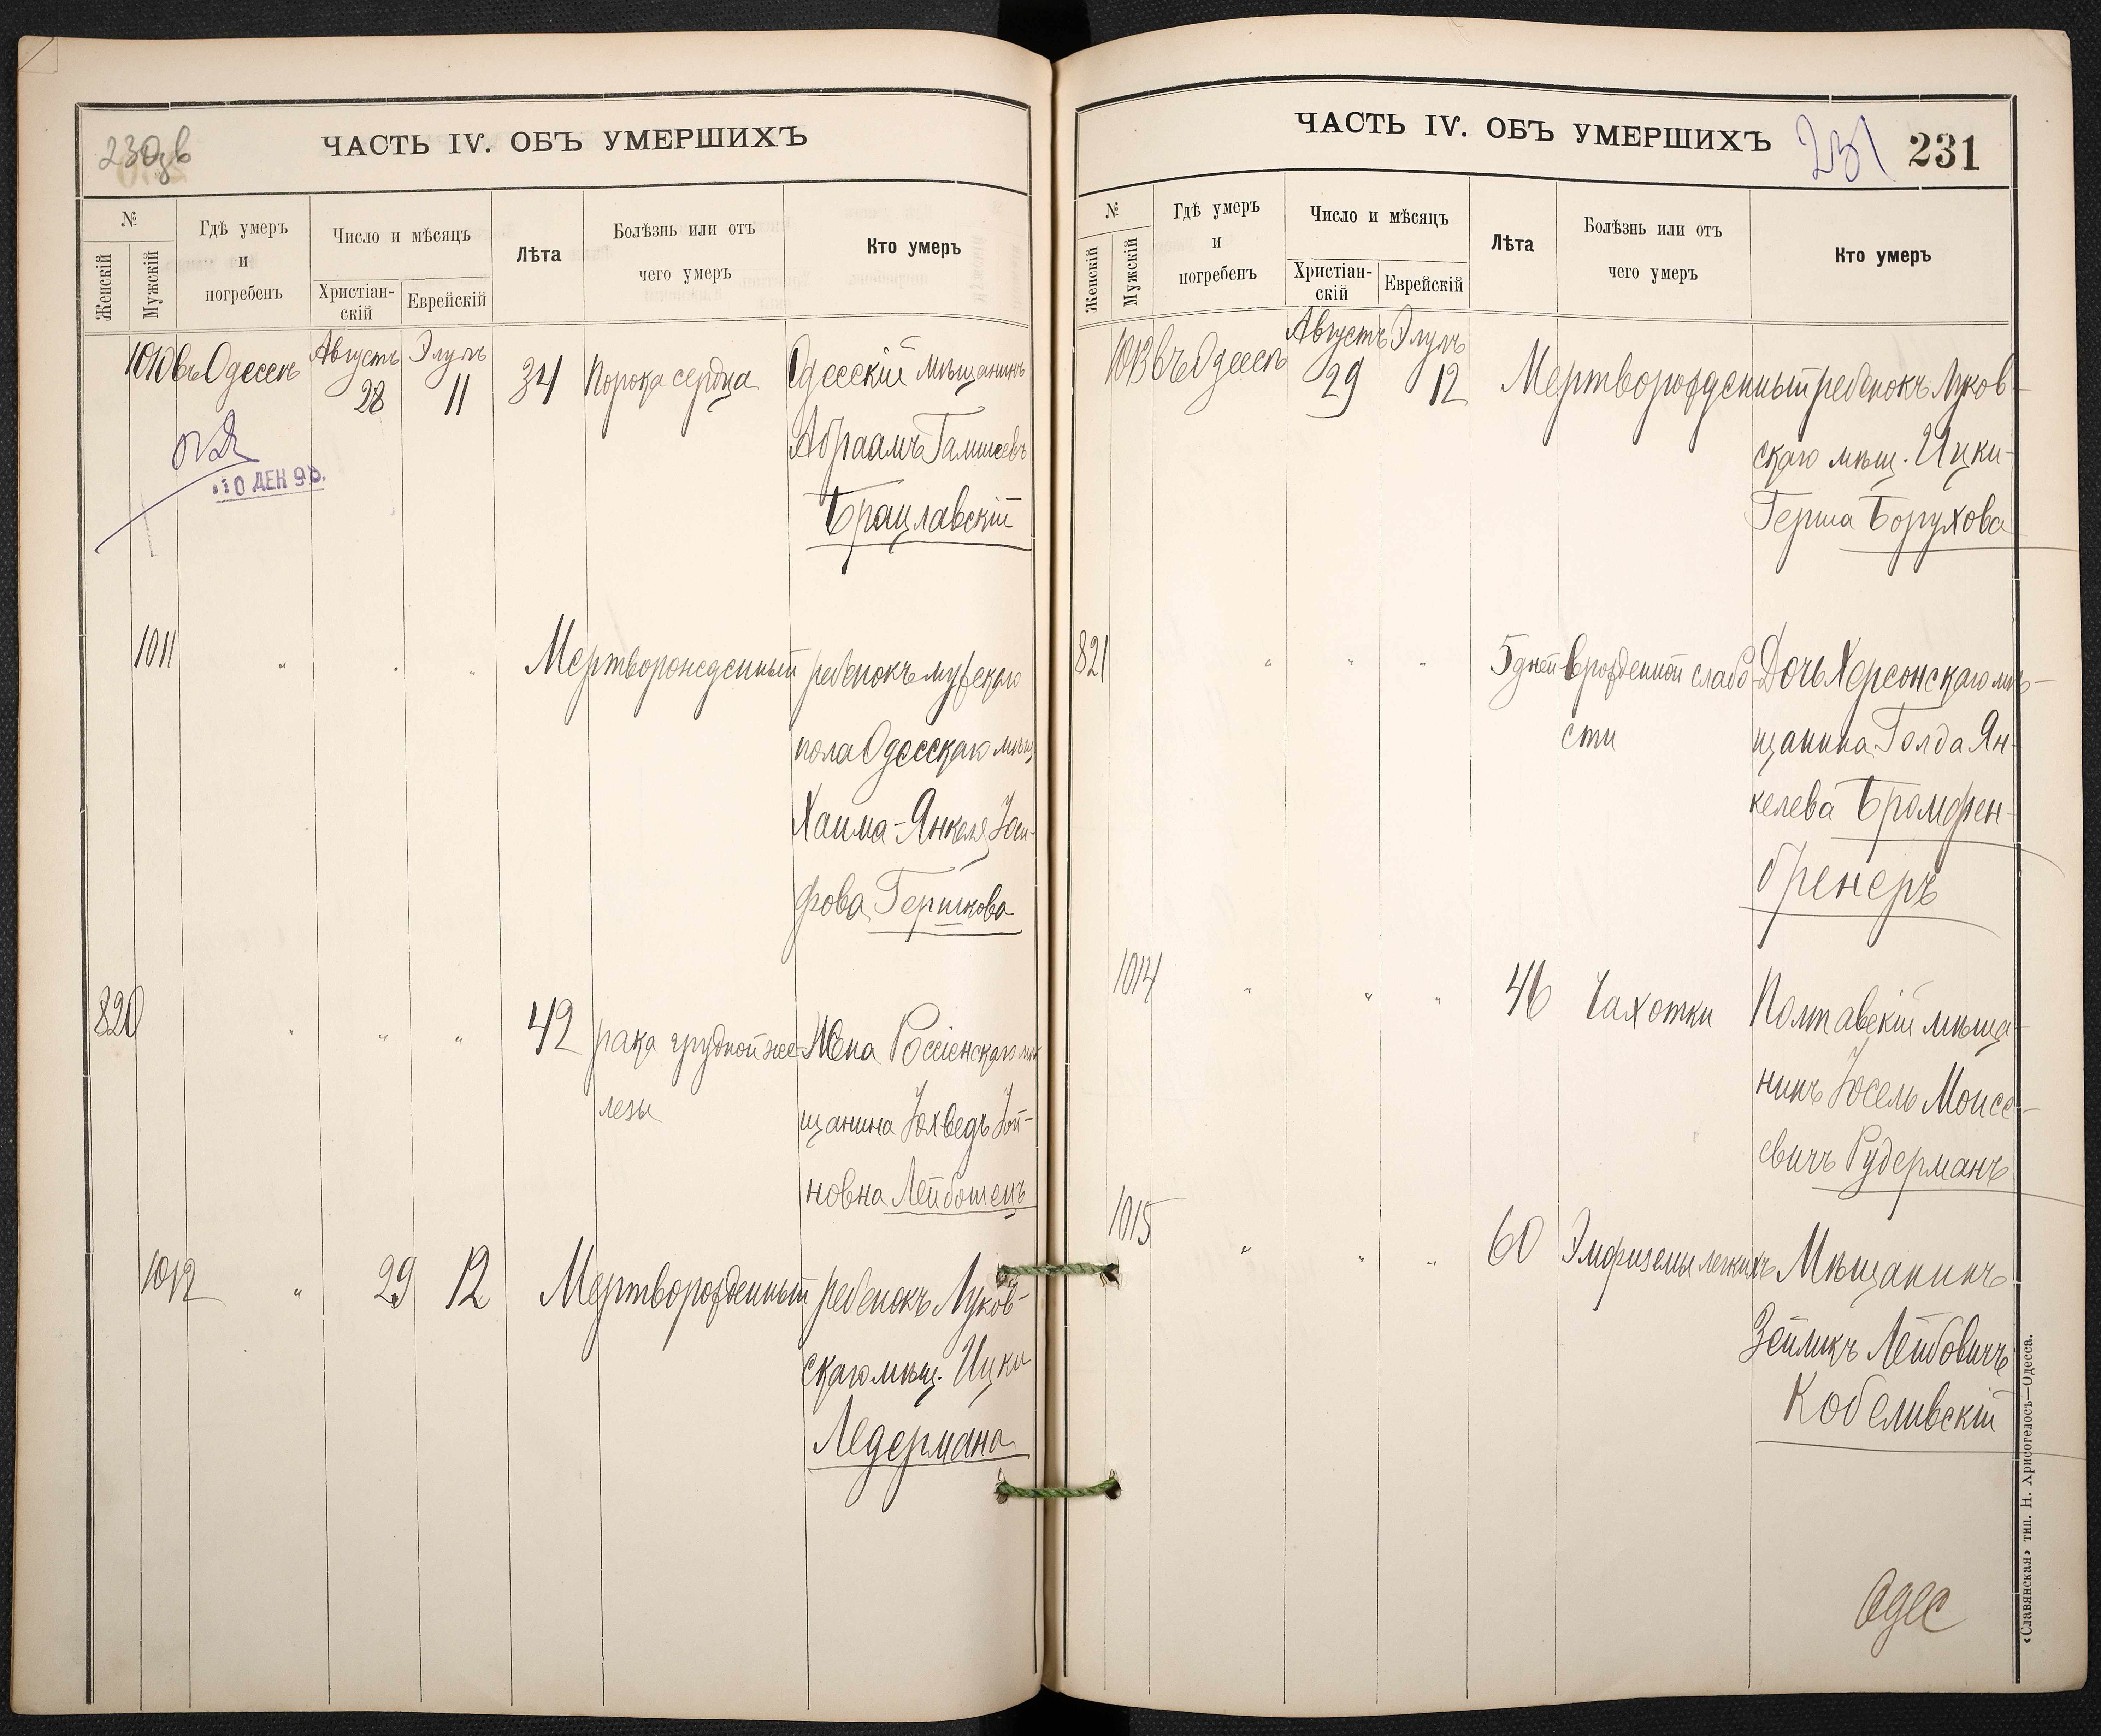 230 об
ЧАСТЬ IV. ОБЪ УМЕРШИХЪ
№
Женскій
Мужскій
Гдѣ умеръ
и
погребенъ
Число и мѣсяцъ
Христіан-
скій
Еврейскій
Лѣта
Болѣзнь или отъ
чего умеръ
Кто умеръ
1010 въ Одессѣ Августъ 28 Элулъ 11 34 Порока сердца Одесскій мѣщанинъ
Абраамъ
Брацлавскій
10 ДЕН 98.
1011 " " " Мертворожденный ребенокъ мужскаго
пола Одесскаго мѣщ
Хаима-Янкеля Іоси-
фова Гершкова
820 " " " 42 рака грудной же- Жена Россіенскаго мѣ
лезы щанина Іохведъ Іой-
новна Лейбошецъ
1012 " 29 12 Мертворожденный ребенокъ Луков-
скаго мѣщ. Ицки
Ледермана
ЧАСТЬ IV. ОБЪ УМЕРШИХЪ
231 231
№
Женскій
Мужскій
Гдѣ умеръ
и
погребенъ
Число и мѣсяцъ
Христіан-
скій
Еврейскій
Лѣта
Болѣзнь или отъ
чего умеръ
Кто умеръ
1013 въ Одессѣ Августъ 29 Элулъ 12 Мертворожденный ребенокъ Луков-
скаго мѣщ. Ицки-
Герша Борухова
821 " " " 5 дней врожденной слабо- Дочь Херсонскаго мѣ-
сти щанина Голда Ян-
келева Бромфен-
бренеръ
1014 " " " 46 Чахотки Полтавскій мѣща-
нинъ Іосель Моисе-
евичъ Рудерманъ
1015 " " " 60 Эмфиземы легкихъ Мѣщанинъ
Зейликъ Лейбовичъ
Кобеливскій
Одес
«Славянская» тип. Н. Хрисогелосъ—Одесса.